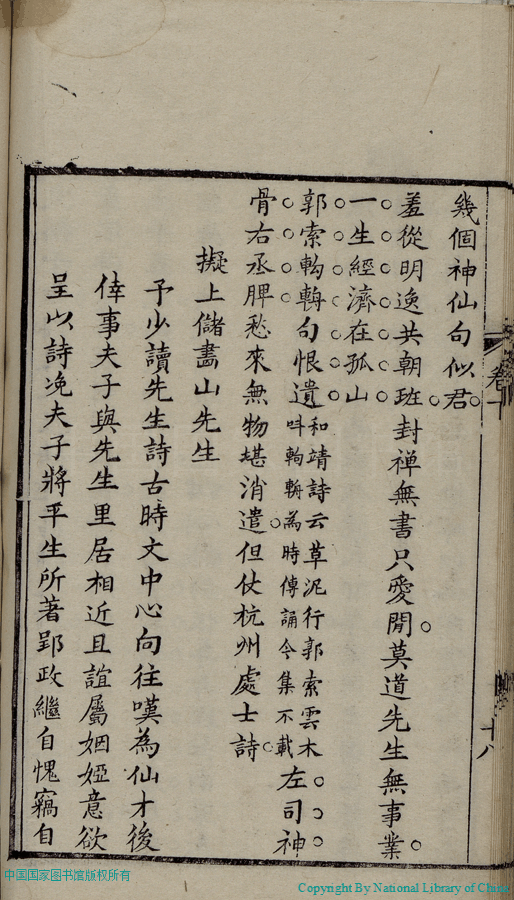 幾個神仙句似君
羞從明逸共朝班封禅無書只愛閒莫道先生無事業
一生經濟在孤山
郭索軥輈句恨遺和靖詩云草泥行郭索雲木
呌軥輈為時傳誦今集不載左司神
骨右丞脾愁來無物堪消遣但仗杭州處士詩
擬上儲畵山先生
予少讀先生詩古時文中心向往嘆為仙才後
倖事夫子與先生里居相近且誼屬姻婭意欲
呈以詩浼夫子將平生所著郢政繼自愧竊自
十八
中国国家图书馆版权所有
Copyright By National Library of China